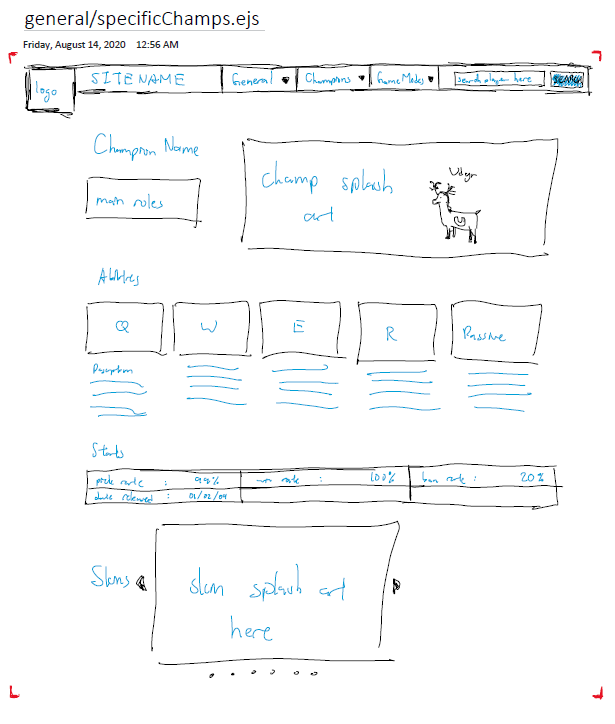 general/specificChamps.ejs
Friday, August 14, 2020 12:56 AM
logo SITENAME General Champions Game Modes search player here SEARCH
Champion Name
main roles
champ splash art
Udyr
Abilities
Q W E R Passive
Description
Stats
pick rate : 99% win rate : 100% ban rate : 20%
date released : 01/02/09
Skins
skin splash art
here